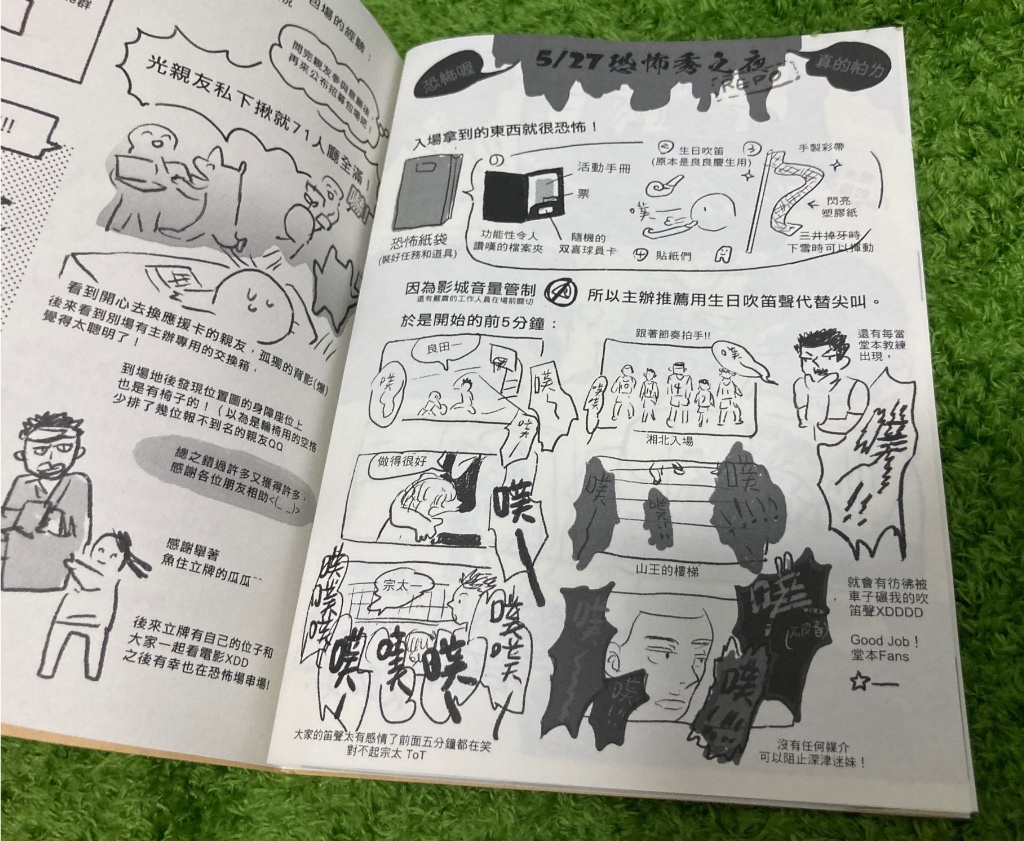 包場的經驗：
問完親友參與意願後，
再來公布招募包場時！
光親友私下揪就71人廳全滿！
!!
看到開心去換應援卡的親友，孤獨的背影(爆)
後來看到別場有主辦專用的交換箱，
覺得太聰明了！
到場地後發現位置圖的身障座位上
也是有椅子的！（以為是輪椅用的空格
少排了幾位報不到名的親友QQ
總之錯過許多又獲得許多，
感謝各位朋友相助<(_ _)>
感謝舉著
魚住立牌的瓜瓜~~
後來立牌有自己的位子和
大家一起看電影XDD
之後有幸也在恐怖場串場!
恐怖喔
5/27恐怖秀之夜
REPO
真的怕力
入場拿到的東西就很恐怖！
恐怖紙袋
(裝好任務和道具)
①
活動手冊
票
功能性令人
讚嘆的檔案夾
隨機的
双喜球員卡
② 生日吹笛
(原本是良良慶生用)
噗
④ 貼紙們
③
手製彩帶
閃亮
塑膠紙
三井掉牙時、
下雪時可以揮動
因為影城音量管制
還有嚴肅的工作人員在場前關切
所以主辦推薦用生日吹笛聲代替尖叫。
於是開始的前5分鐘：
良田一
噗
噗
做得很好
噗
宗太一
噗
噗
噗
噗
大家的笛聲太有感情了前面五分鐘都在笑
對不起宗太 ToT
跟著節奏拍手!!
噗
噗
湘北入場
噗
噗
噗
山王的樓梯
噗
噗
噗
沒有任何媒介
可以阻止深津迷妹！
還有每當
堂本教練
出現，
噗
!!
就會有彷彿被
車子碾我的吹
笛聲XDDDD
Good Job！
堂本Fans
☆—